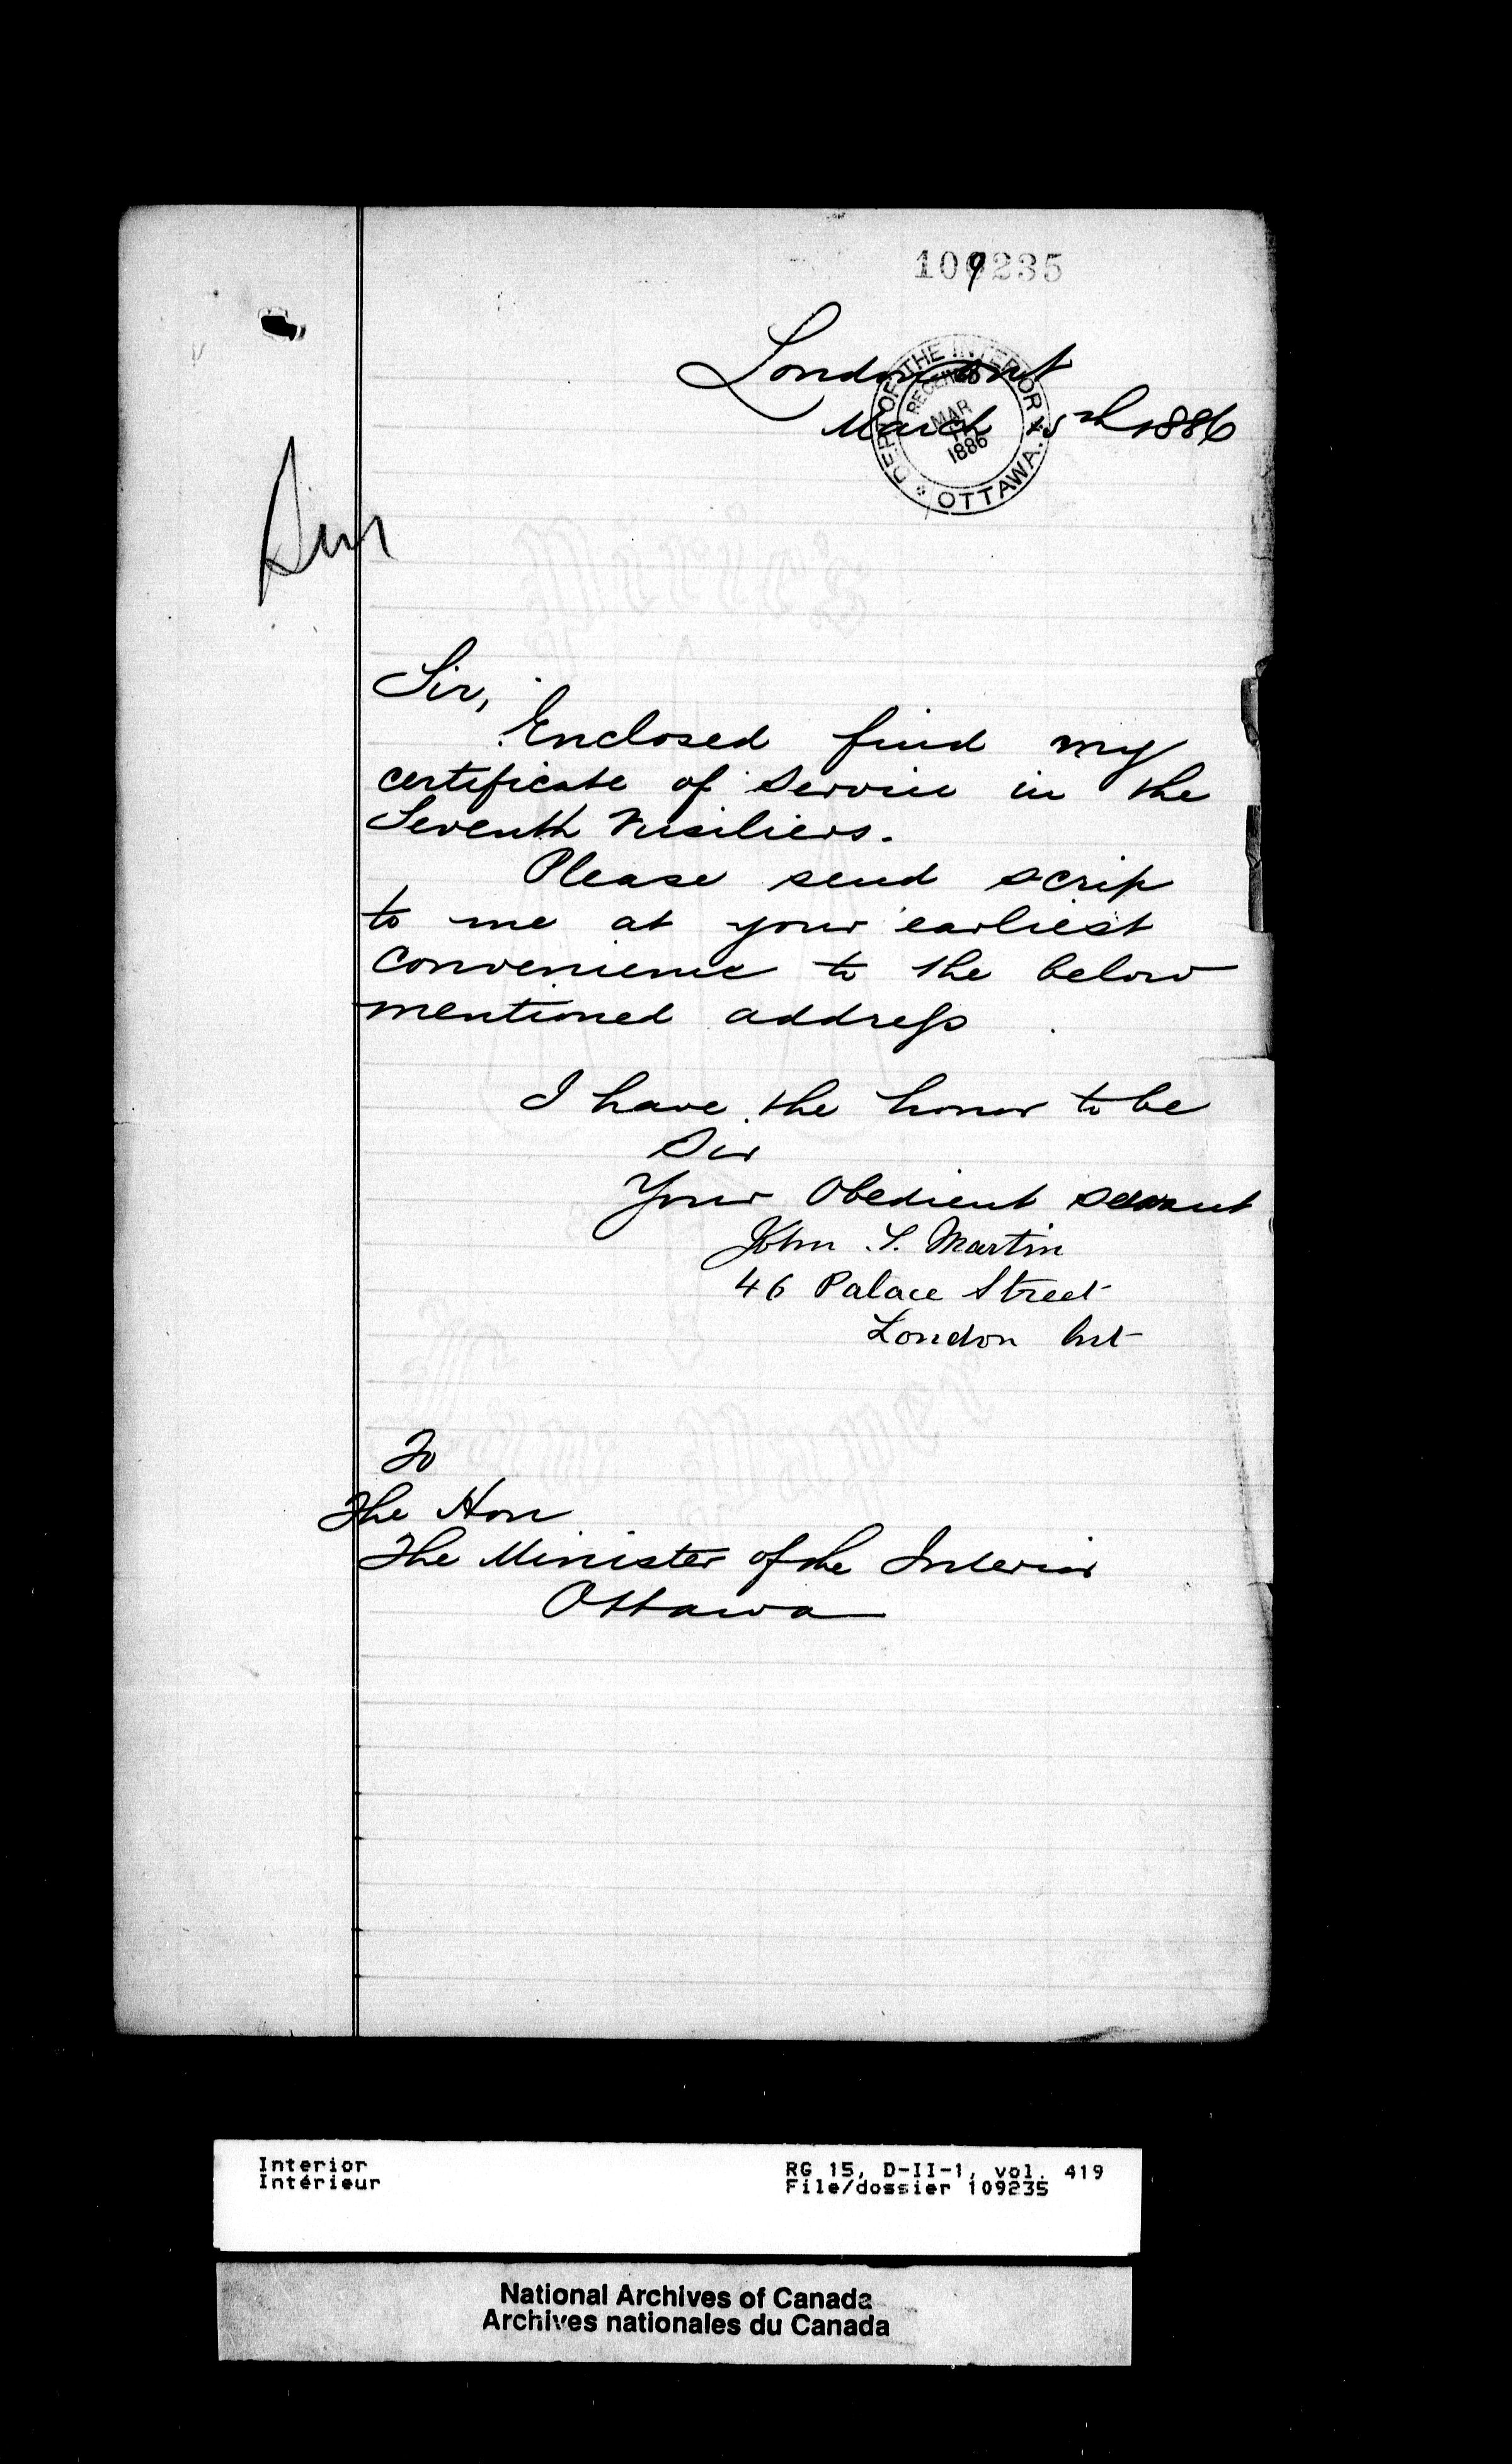 109235
London Ont
March 15th 1886
DEPT OF THE INTERIOR
RECEIVED
MAR
1886
OTTAWA.
Sir,
Enclosed find my
certificate of service in the
Seventh Fusiliers.
Please send scrip
to me at your earliest
convenience to the below
mentioned address
I have the honor to be
Sir
Your Obedient servant
John S. Martin
46 Palace Street
London Ont
To
The Hon
The Minister of the Interior
Ottawa
Interior
Intérieur
RG 15, D-II-1, vol. 419
File/dossier 109235
National Archives of Canada
Archives nationales du Canada